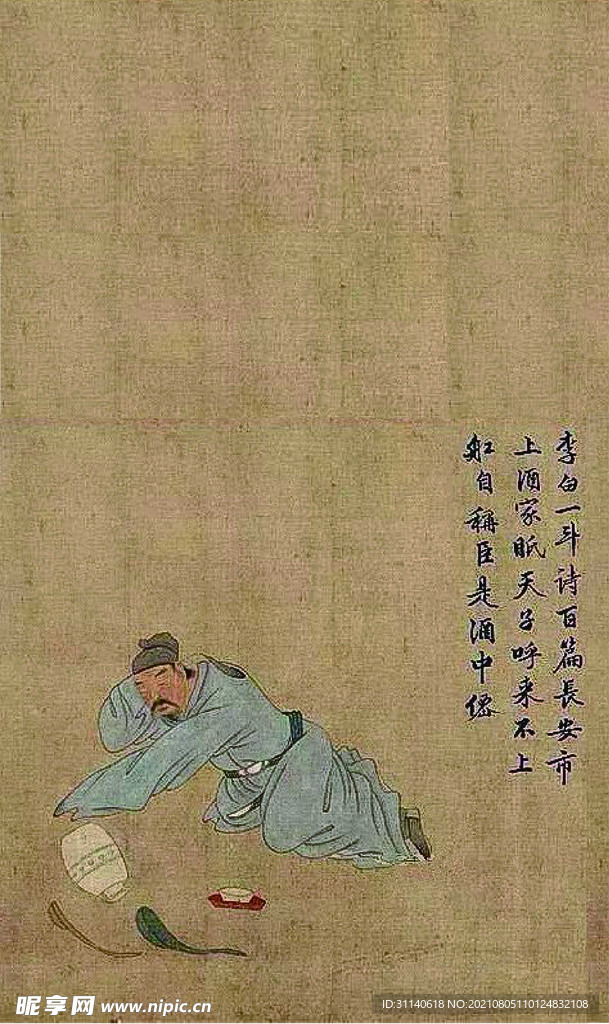 李白一斗诗百篇長安市
上酒家眠天子呼来不上
船自稱臣是酒中僊
昵享网 www.nipic.cn
ID:31140618 NO:20210805110124832108